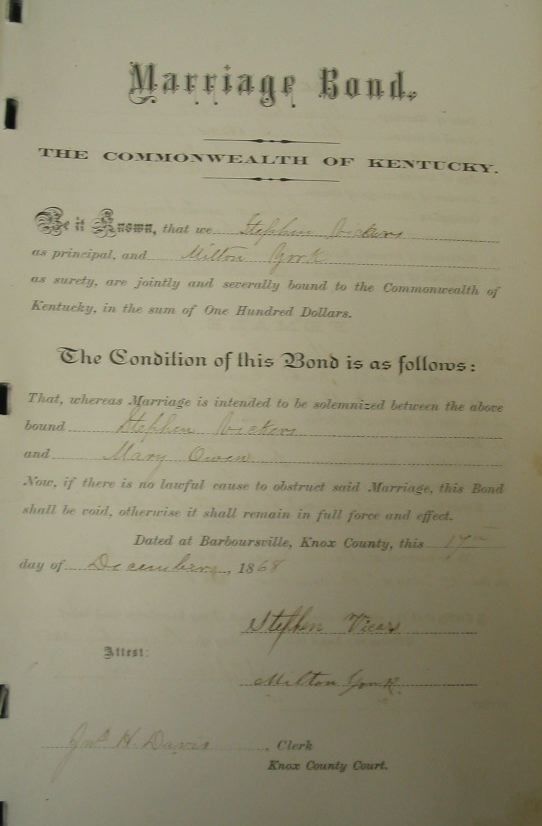 Marriage Bond.
THE COMMONWEALTH OF KENTUCKY.
Be it Known, that we Stephen Vickers
as principal, and Milton York
as surety, are jointly and severally bound to the Commonwealth of
Kentucky, in the sum of One Hundred Dollars.
The Condition of this Bond is as follows:
That, whereas Marriage is intended to be solemnized between the above
bound Stephen Vickers
and Mary Owen
Now, if there is no lawful cause to obstruct said Marriage, this Bond
shall be void, otherwise it shall remain in full force and effect.
Dated at Barboursville, Knox County, this 17th
day of December, 1868
Stephen Vicars
Attest:
Milton York
Jno H. Davis, Clerk
Knox County Court.